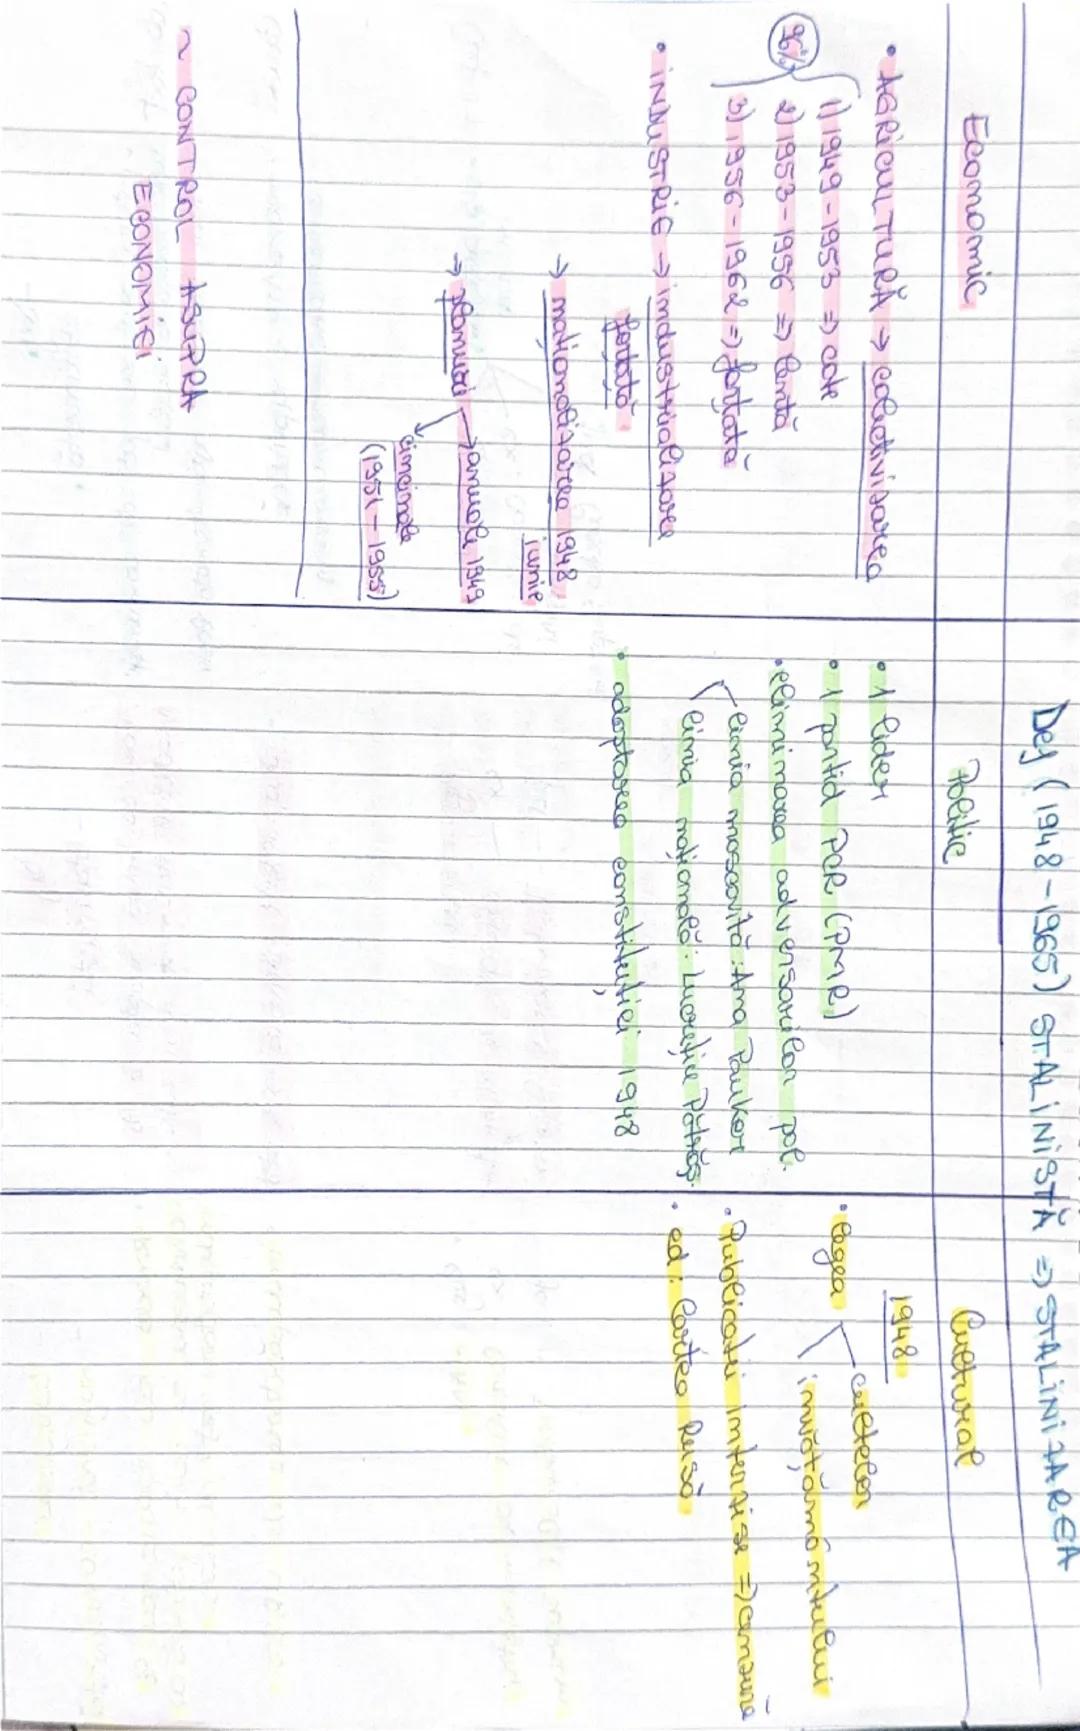 Dej (1948-1965) STALINISTĂ => STALINIZAREA
Economic
• AGRICULTURĂ → colectivizarea
1) 1949-1953 => cote
96%
2) 1953-1956 => lentă
3) 1956-1962 => forțată
• INDUSTRIE → industrializare
forțată
→ naționalizarea 1948
iunie
→ planuri → anuale 1949
cincinale
(1951-1955)
~ CONTROL ASUPRA
ECONOMIEI
Politic
• 1 lider
• 1 partid PCR (PMR)
• eliminarea adversarilor pol.
linia moscovită: Ana Pauker
linia națională: Lucrețiu Pătrăș.
• adoptarea constituției 1948
Cultural
1948
• legea
cultelor
învățământului
• Publicații interzise => cenzură
• ed: Cartea Rusă